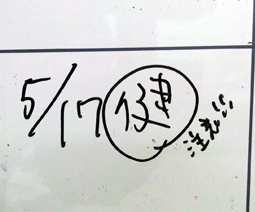 5/17 健 注意!!